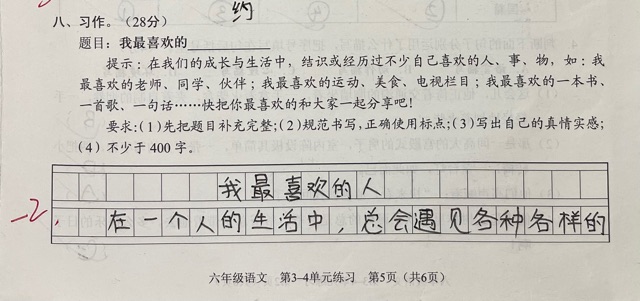 约
八、习作。（28分）
题目：我最喜欢的
提示：在我们的成长与生活中，结识或经历过不少自己喜欢的人、事、物，如：我
最喜欢的老师、同学、伙伴；我最喜欢的运动、美食、电视栏目；我最喜欢的一本书、
一首歌、一句话……快把你最喜欢的和大家一起分享吧！
要求：(1)先把题目补充完整；(2)规范书写，正确使用标点；(3)写出自己的真情实感；
(4)不少于400字。
我最喜欢的人
-2.
在一个人的生活中，总会遇见各种各样的
六年级语文 第3-4单元练习 第5页（共6页）